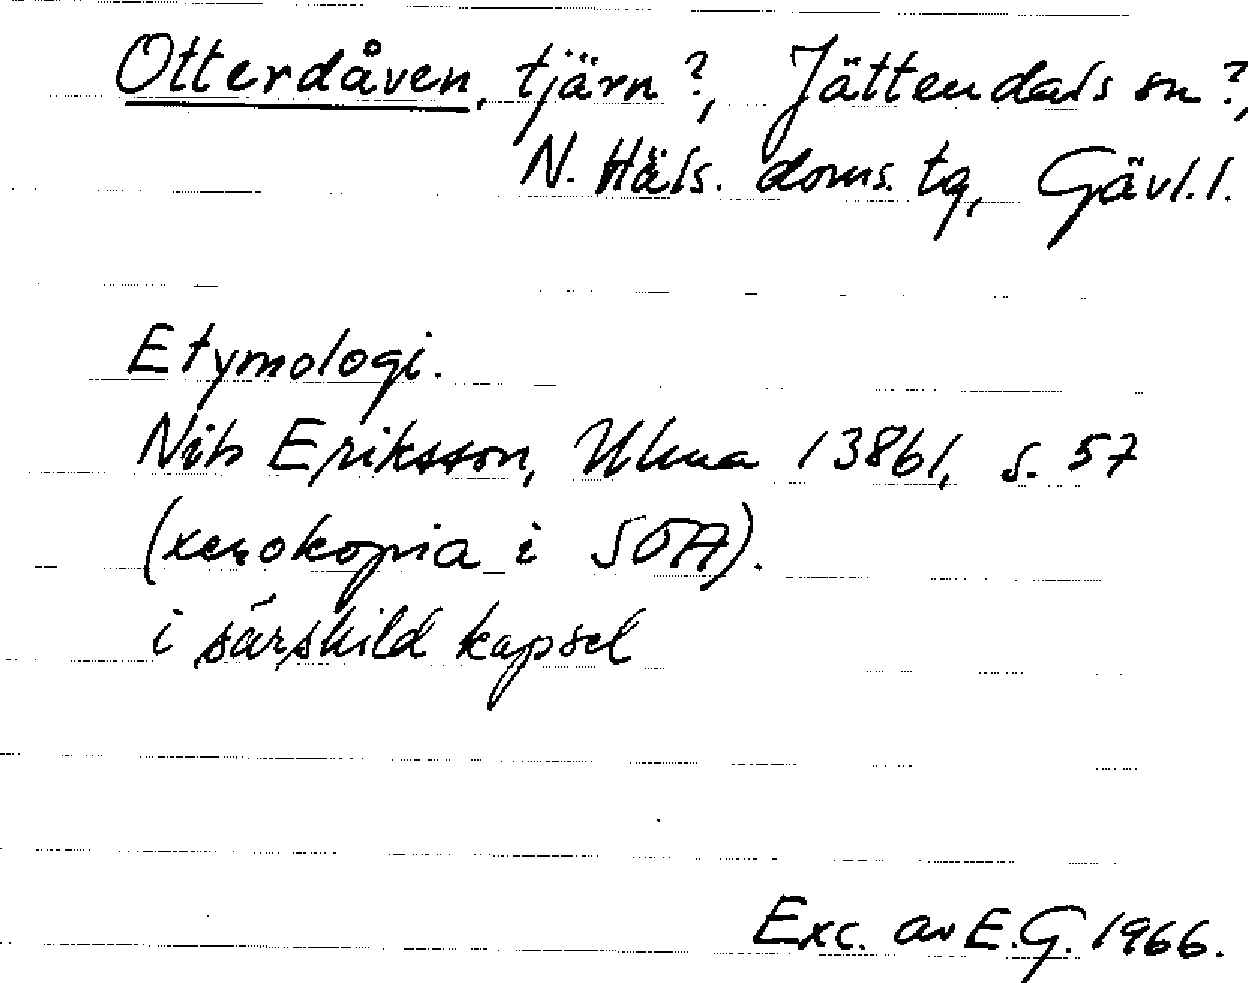 Otterdåven, tjärn?, Jättendals sn?,
N. Häls. doms. tg, Gävl. l.
Etymologi.
Nils Eriksson, Ulma 13861, s. 57
(xerokopia i SOA).
i särskild kapsel
Exc. av E.G. 1966.